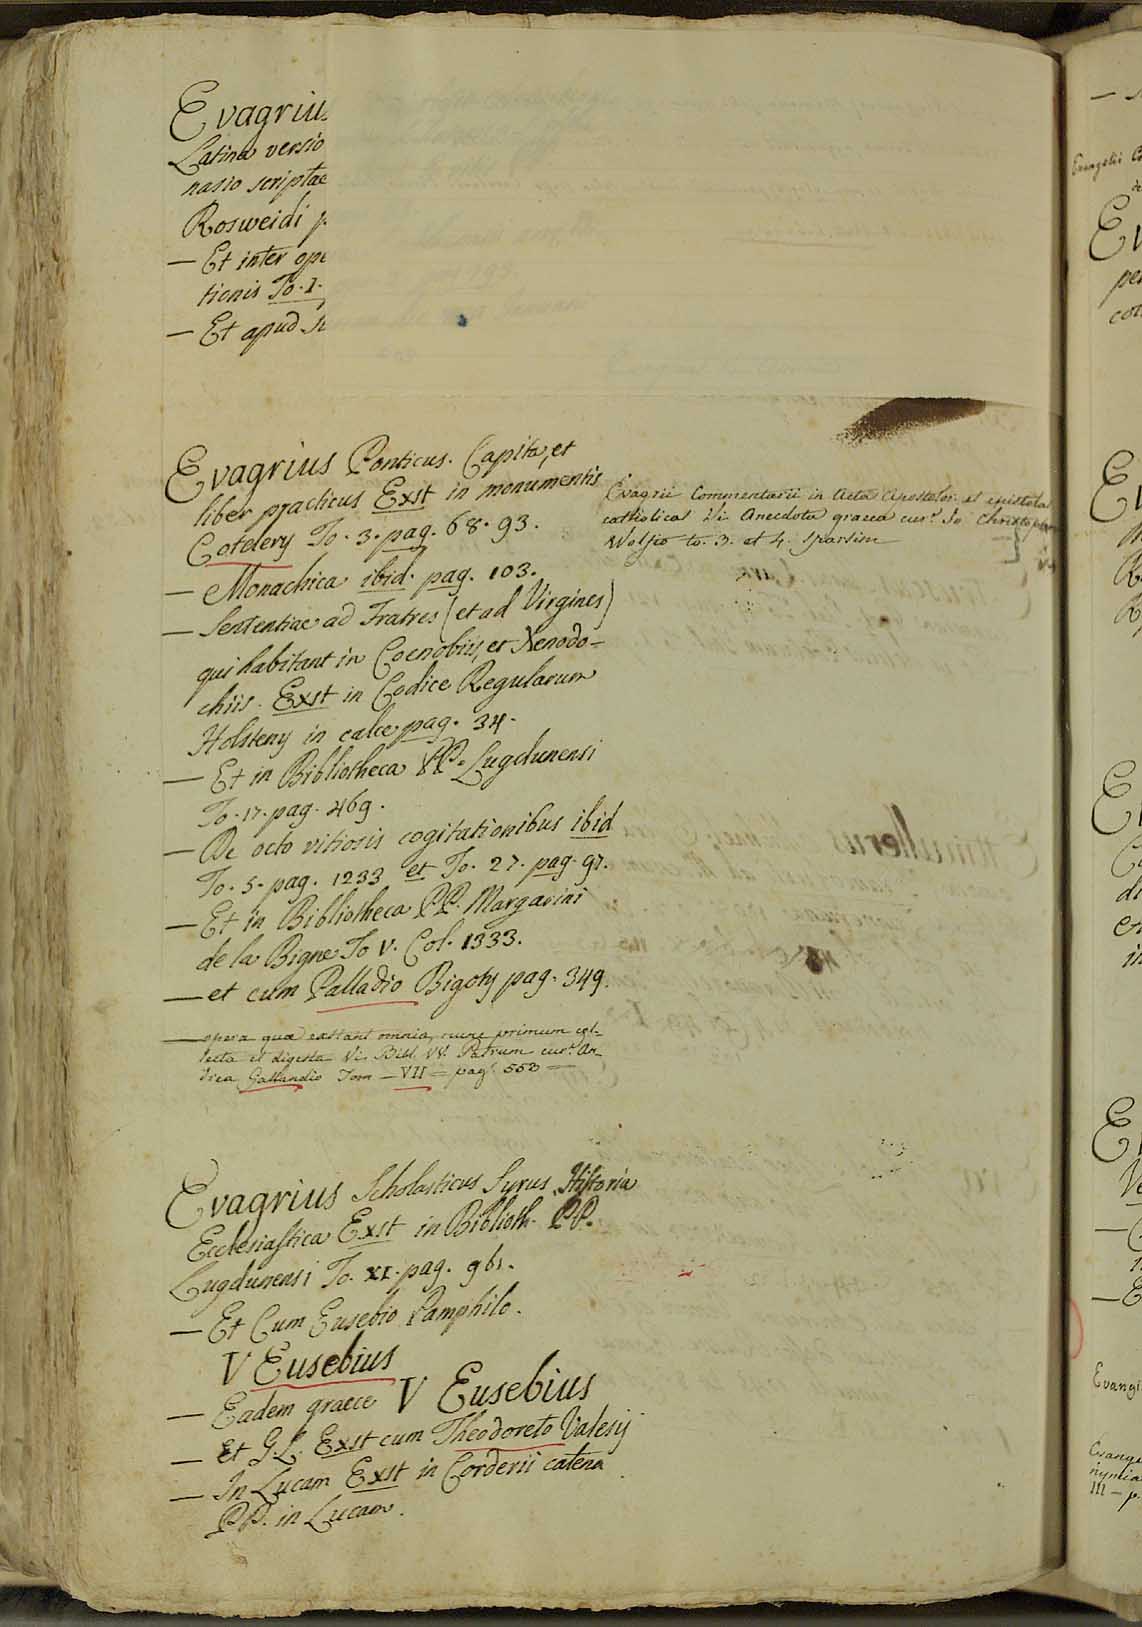 Evagrius
Latina versio
nasio scriptae
Rosweidi p
— Et inter ope
tionis To. 1.
— Et apud Su
Evagrius Ponticus. Capita, et
liber practicus Exst in monumentis
Cotelery To. 3. pag. 68. 93.
— Monachica ibid. pag. 103.
— Sententiae ad Fratres (et ad Virgines)
qui habitant in Coenobiis, et Xenodo=
chiis. Exst in Codice Regularum
Holsteny in calce pag. 34.
— Et in Bibliotheca PP. Lugdunensi
To. 17. pag. 469.
— De octo vitiosis cogitationibus ibid
To. 5. pag. 1233 et To. 27. pag. 97.
— Et in Bibliotheca PP. Margarini
de la Bigne To V. Col. 1333.
— et cum Palladio Bigoty pag. 349.
— opera quae exstant omnia, nunc primum col-
lecta et digesta Vi. Bibl. VV. Patrum cur.e An-
drea Gallandio Tom — VII = pag. 550 —
Evagrii Commentarii in Acta Apostolor. et epistolas
catholicas Vi. Anecdota graeca cur.e Jo. Christophoro
Wolfio to. 3. et 4. sparsim
Evagrius Scholasticus Syrus. Historia
Ecclesiastica Exst in Biblioth. PP.
Lugdunensi To. XI. pag. 961.
— Et Cum Eusebio Pamphilo.
V Eusebius
— Eadem graece V Eusebius
— Et G.L. Exst cum Theodoreto Valesij
— In Lucam Exst in Corderii catena
PP. in Lucam.
Evangelii
Ev
per
Evangi
Evange
nymia
III — p.